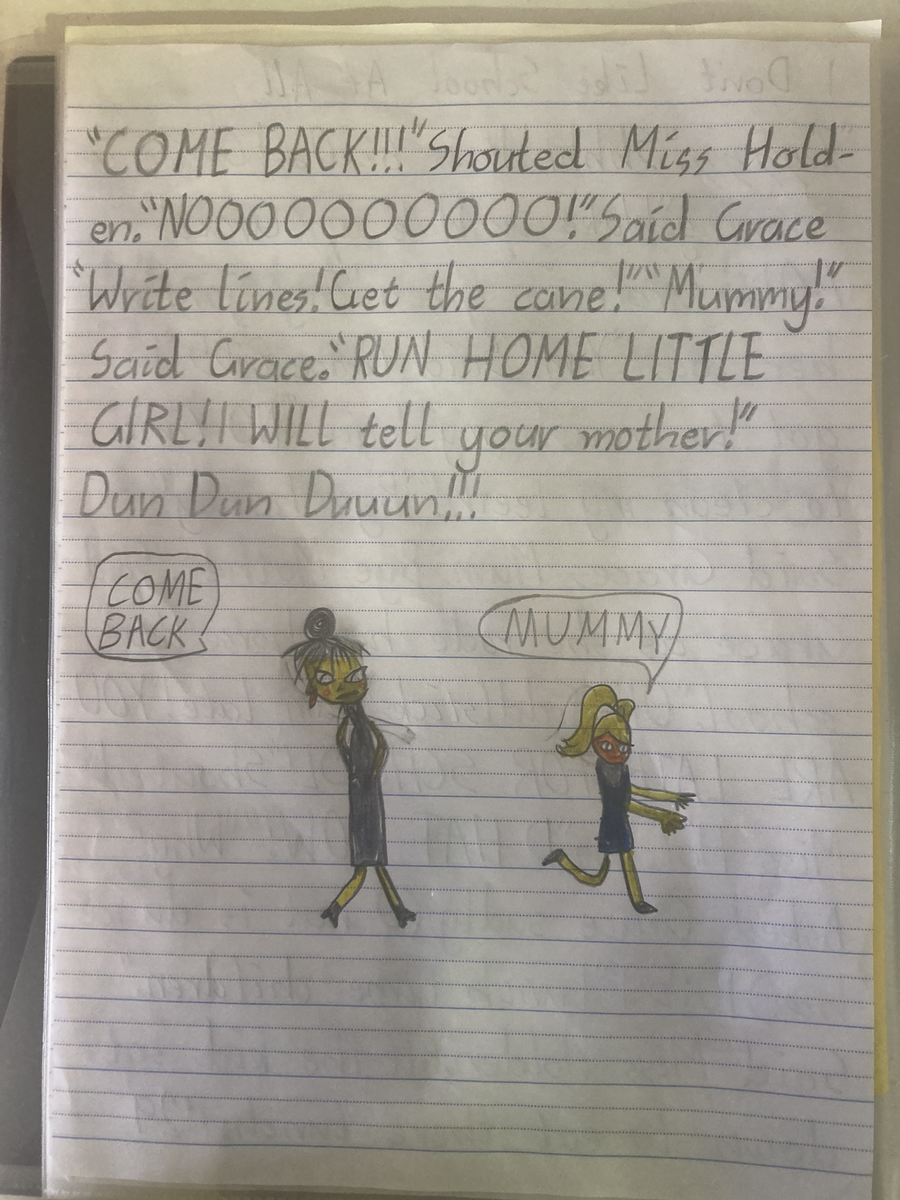 "COME BACK!!!"Shouted Miss Hold-
en."NOOOOOOOOOO!"Said Grace
"Write lines!Get the cane!""Mummy!"
Said Grace."RUN HOME LITTLE
GIRL!I WILL tell your mother!"
Dun Dun Duuun!!!
COME
BACK
MUMMY